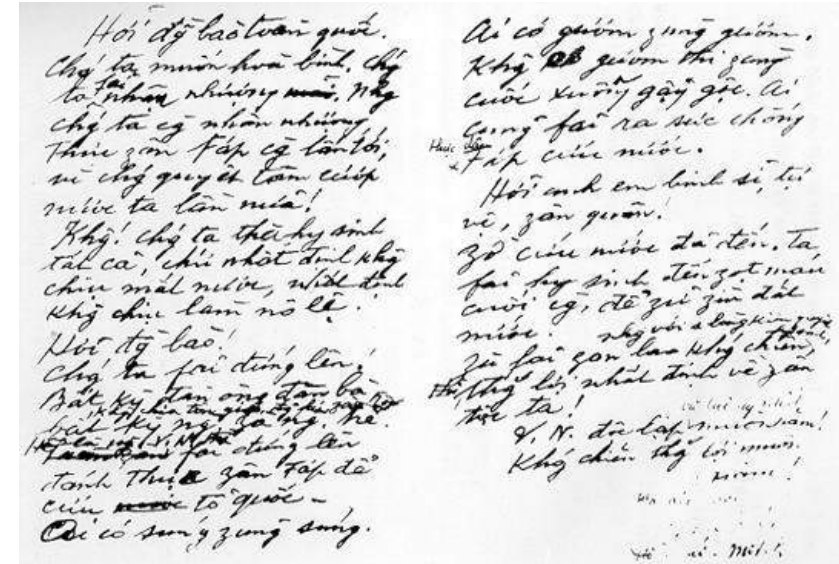 Hỡi đg̃ bào toàn quốc.
Chg' ta muốn hoà bình, chg'
ta fải nhân nhượng. Nhg
chg' ta cg̃ nhân nhượng
Thực zân Fáp cg̃ lấn tới,
vì chg' quyết tâm cướp
nước ta lần nữa!
Khg! chg' ta thà hy sinh
tất cả, chứ nhất định khg
chịu mất nước, nhất định
khg chịu làm nô lệ.
Hỡi đg̀ bào!
Chg' ta fải đứng lên!
Bất kỳ đàn ông đàn bà
bất kỳ ng zà ng. trẻ.
fải đứng lên
đánh Thực zân Fáp để
cứu tổ quốc -
Ai có súng zùng súng.
Ai có gươm zùng gươm.
Khg có gươm thì zùng
cuốc xuổng gậy gộc. Ai
cũng fải ra sức chống
Thực zân
Fáp cứu nước.
Hỡi anh em binh sĩ, tự
vệ, zân quân!
Zờ cứu nước đã đến. Ta
fải hy sinh đến zọt máu
cuối cg̀, để zữ zìn đất
nước.
Zù fải zan lao khg' chiến,
thg' lợi nhất định về zân
tộc ta!
V. N. độc lập muôn năm!
Khg' chiến thg' lợi muôn